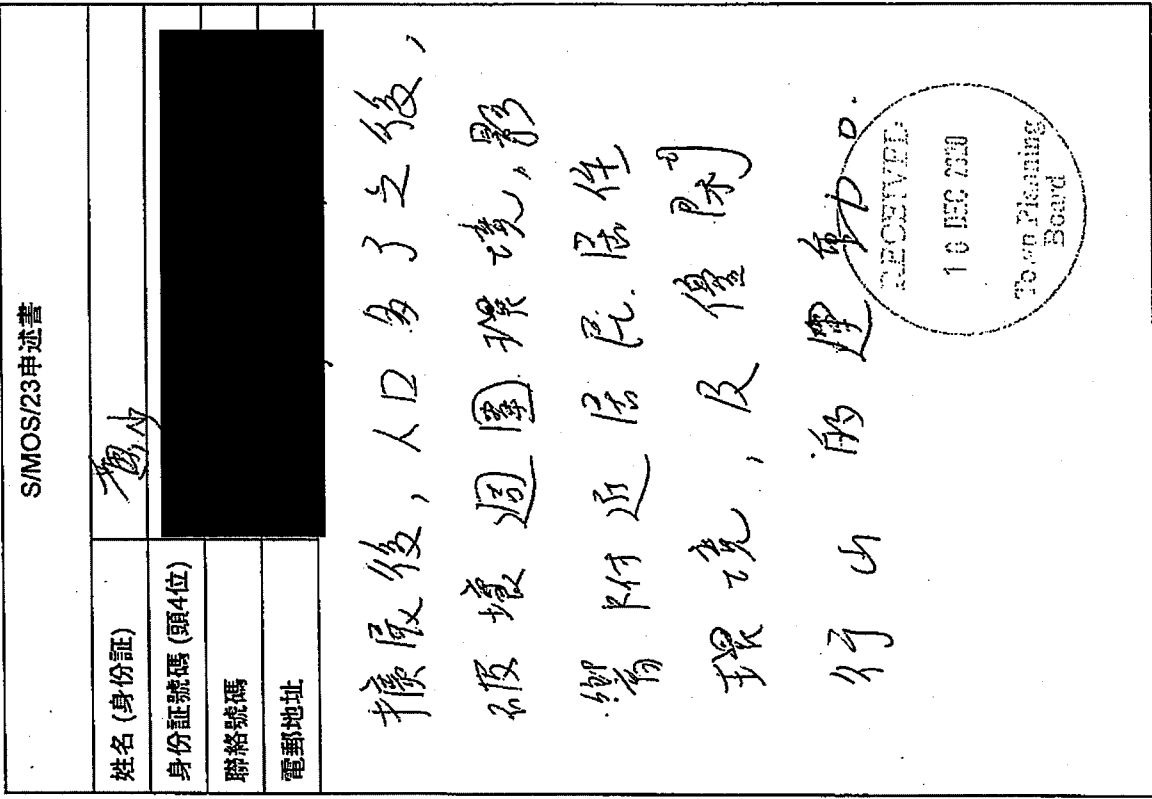 S/MOS/23申述書
姓名 (身份証)
身份証號碼 (頭4位)
聯絡號碼
電郵地址
擴展後，人口多了之後，
破壞週圍環境，影
響附近居民.居住
環境，及僅剩
行山的運動。
RECEIVED
10 DEC 2020
Town Planning
Board